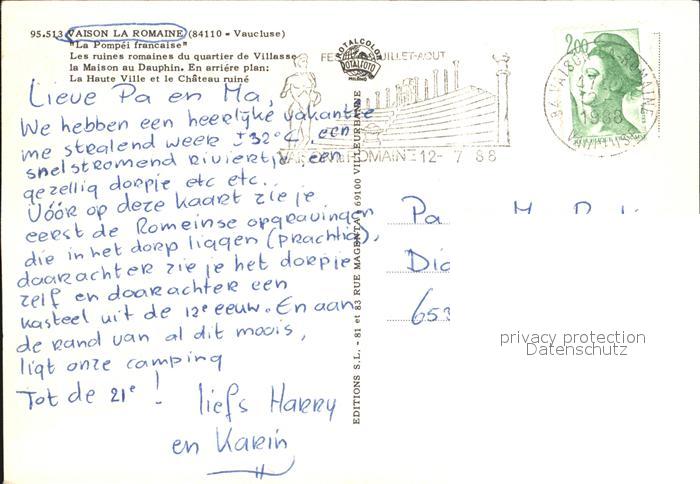 95.513 VAISON LA ROMAINE (84110 - Vaucluse)
"La Pompéi française"
Les ruines romaines du quartier de Villasse
la Maison au Dauphin. En arrière plan:
La Haute Ville et le Château ruiné
Lieve Pa en Ma,
We hebben een heerlijke vakantie
me stralend weer ± 32°C, een
snelstromend riviertje, een
gezellig dorpje etc etc.
Vóór op deze kaart zie je
eerst de Romeinse opgravingen
die in het dorp liggen (prachtig),
daarachter zie je het dorpje
zelf en daarachter een
kasteel uit de 12e eeuw. En aan
de rand van al dit moois,
ligt onze camping
Tot de 21e!
liefs Harry
en Karin
EDITIONS S.L. - 81 et 83 RUE MAGENTA - 69100 VILLEURBANNE
ROTALCOLOR
ROTALFOTO
MILANO
JUILLET-AOUT
VAISON LA ROMAINE 12- 7 88
2,00
84 VAISON-LA-ROMAINE
1988
VAUCLUSE
Pa
Dic
653
privacy protection
Datenschutz